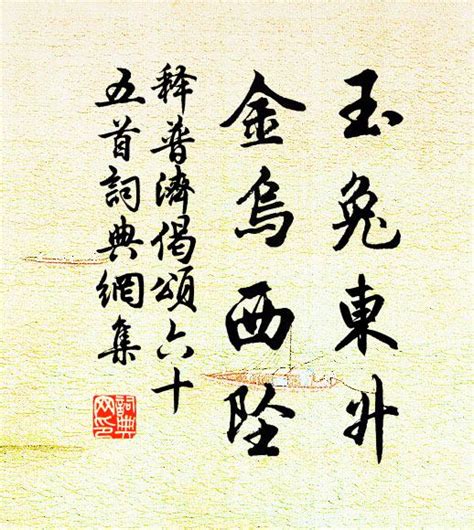 玉兔東升
金烏西墜
释普濟偈頌六十
五首詞典網集
詞典网印